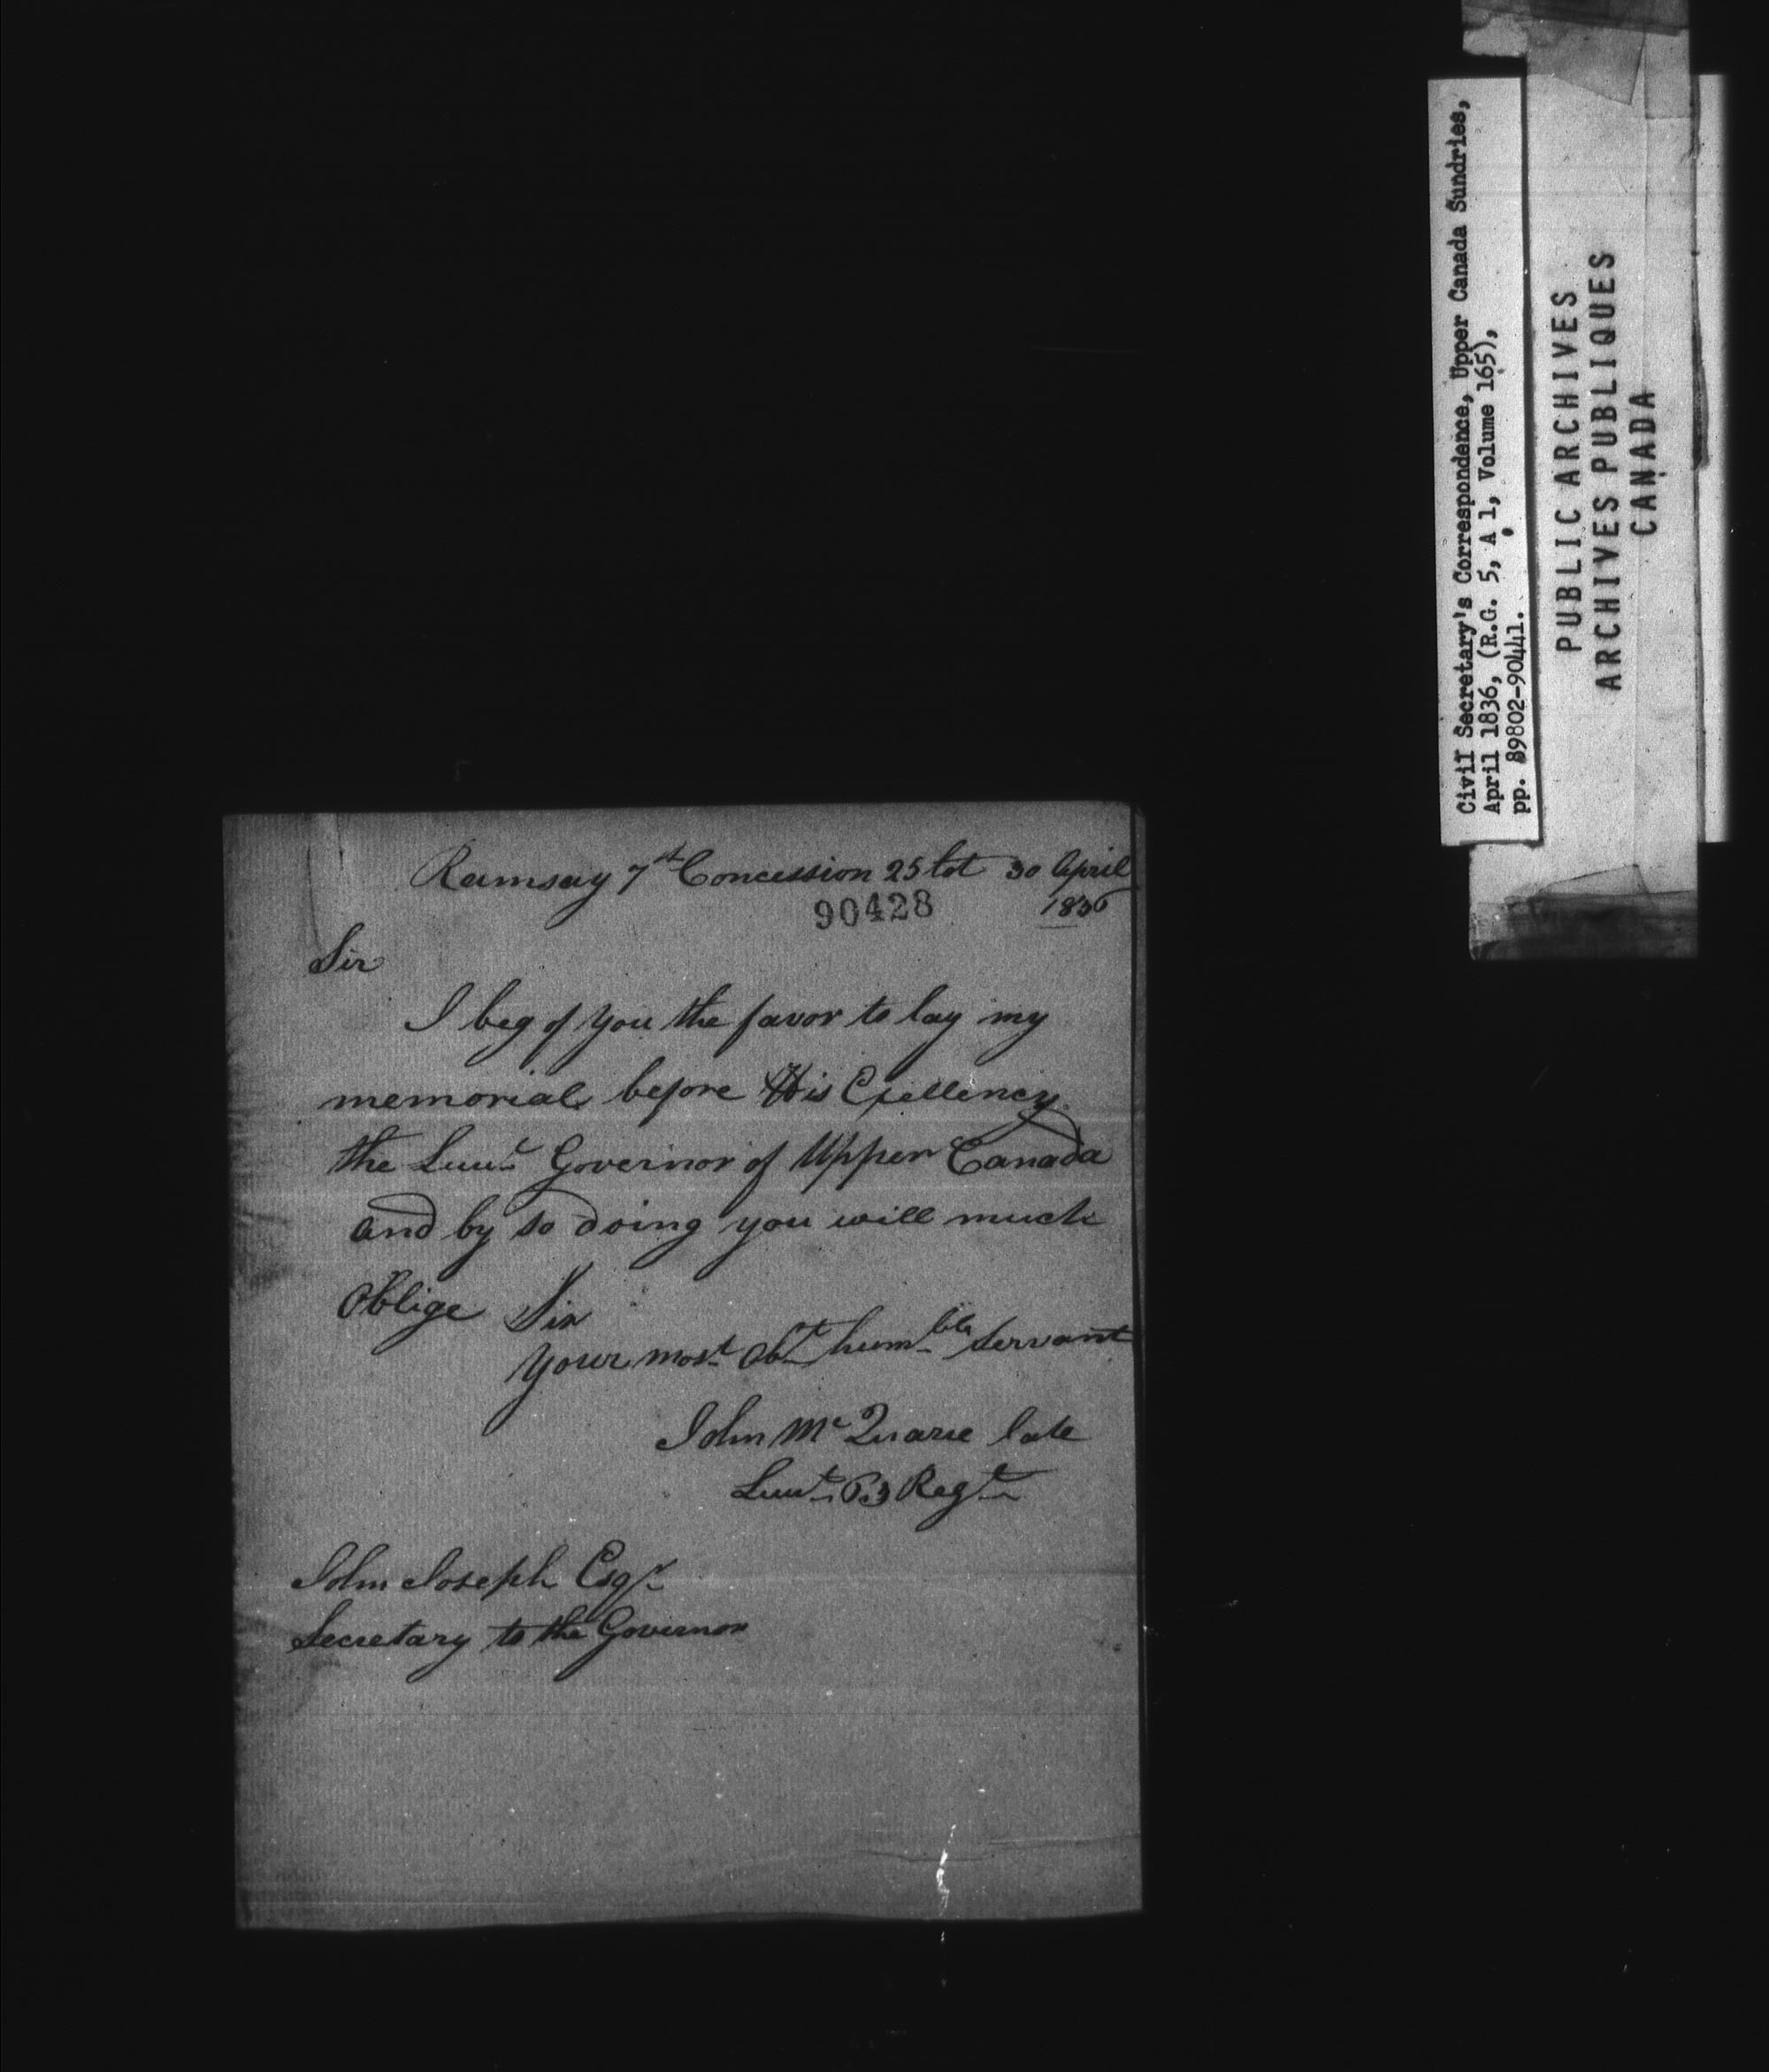 Ramsay 7th Concession 25 lot 30 April
1836
90428
Sir
I beg of you the favor to lay my
memorial before His Exellency
the Lieut Governor of Upper Canada
and by so doing you will much
Oblige Sir
Your most obt humble Servant
John Mc Quarie late
Lieut 63 Regt
John Joseph Esqr
Secretary to the Governor
Civil Secretary's Correspondence, Upper Canada Sundries,
April 1836, (R.G. 5, A 1, Volume 165),
pp. 89802-90441.
PUBLIC ARCHIVES
ARCHIVES PUBLIQUES
CANADA